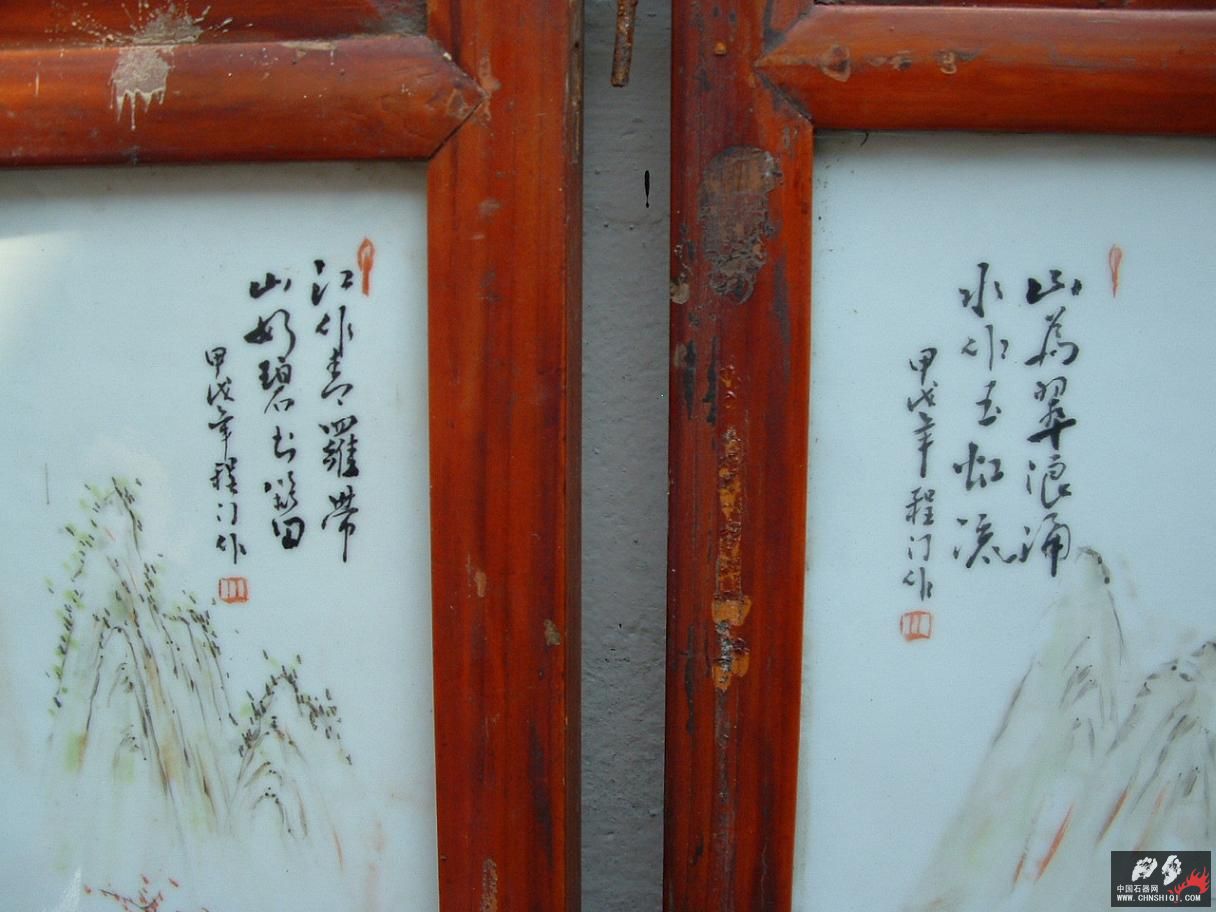 山為翠浪涌
水作玉虹流
甲戌年程门作
江作青羅帶
山如碧玉簪
甲戌年程门作
中国石器网
WWW.CHNSHIQI.COM